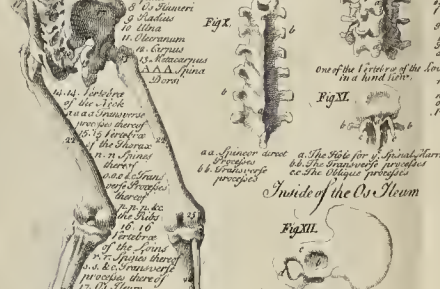 8 Os Humeri
9 Radius
10 Ulna
11. Olecranum
12. Carpus
13. Metacarpus
AAA Spina
Dorsi
14. 14. Vertebræ
of the Neck
a a a a Transverse
processes thereof
15. 15 Vertebræ
of the Thorax
n. n Spines
thereof
o.o.o &c. Trans
verse Processes
thereof
p. p. p. &c.
the Ribs
16. 16
Vertebræ
of the Loins
r. r. Spines thereof
s. s. &c. Transverse
processes there of
17. Os Ileum
22
22
25
Fig X.
b
b
a a. Spines or direct
Processes
b b. Transverse
processes
One of the Vertebræ of the
in a hind View.
Fig XI.
b
b
a. The Hole for y.e Spinal Marr
b.b. The Transverse processes
c c. The Oblique processes
Inside of the Os Ileum
Fig XII.
b
c